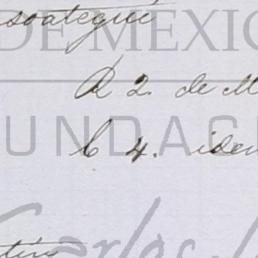 soategui
DE MEXIC
R 2. de M
UNDACI
C 4. iden
Carlos